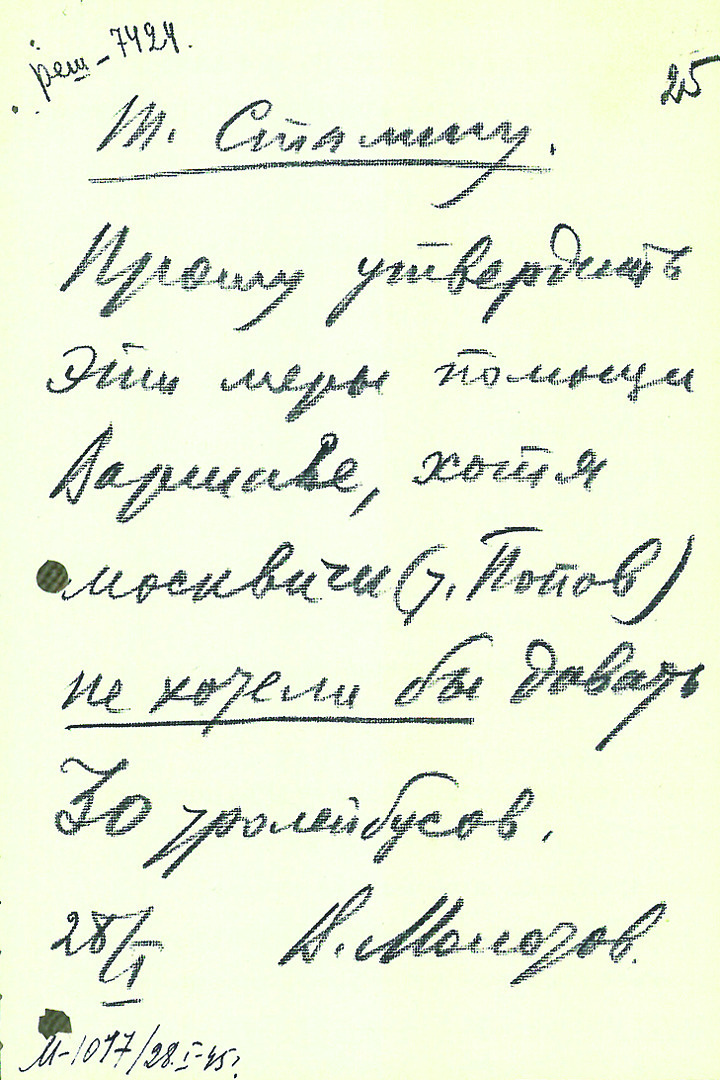 реш-7424.
25
Т. Сталину.
Прошу утвердить
эти меры помощи
Варшаве, хотя
москвичи (т. Попов)
не хотели бы давать
30 тролейбусов.
28/I В. Молотов.
М-1047/28.I-45г.